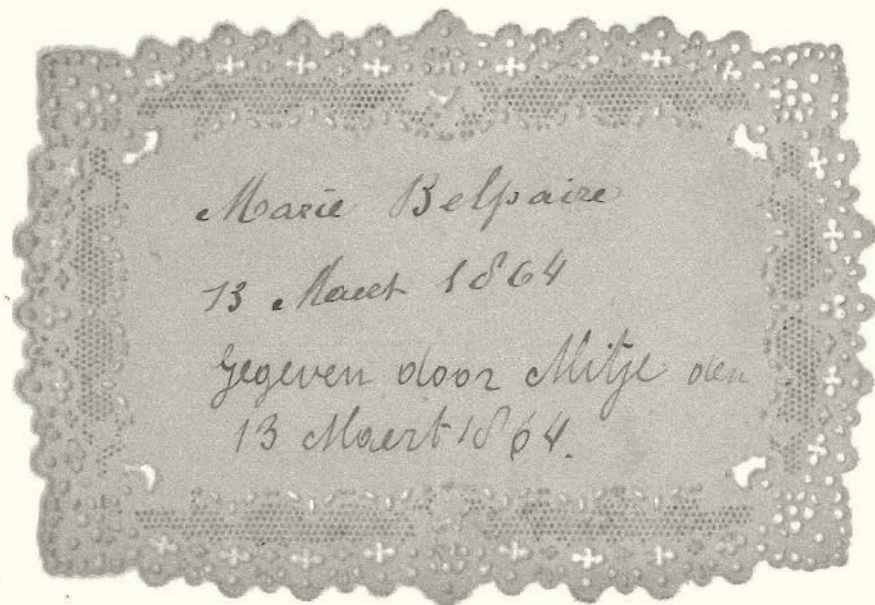 Marie Belpaire
13 Maert 1864
Gegeven door Mitje den
13 Maert 1864.